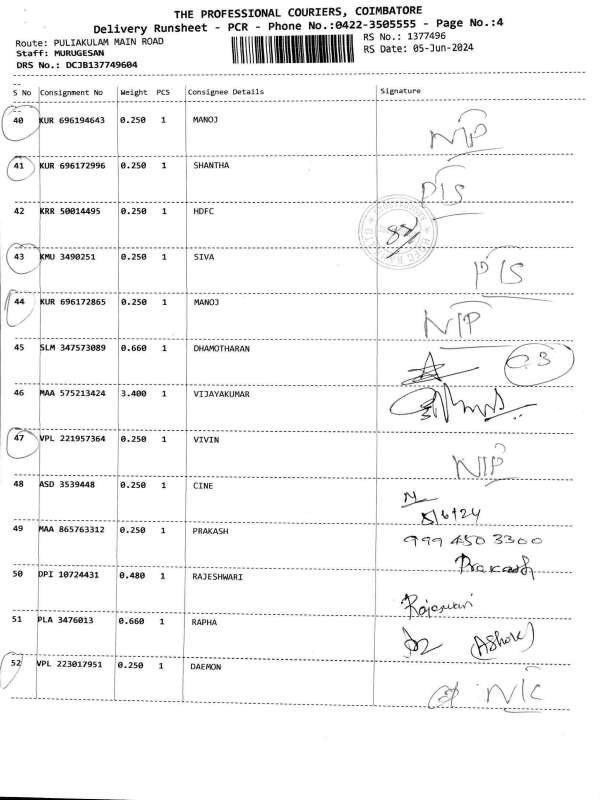 THE PROFESSIONAL COURIERS, COIMBATORE
Delivery Runsheet - PCR - Phone No.:0422-3505555 - Page No.:4
Route: PULIAKULAM MAIN ROAD
RS No.: 1377496
Staff: MURUGESAN
RS Date: 05-Jun-2024
DRS No.: DCJB137749604
S No Consignment No Weight PCS Consignee Details Signature
40 KUR 696194643 0.250 1 MANOJ NIP
41 KUR 696172996 0.250 1 SHANTHA PIS
42 KRR 50014495 0.250 1 HDFC
43 KMU 3490251 0.250 1 SIVA PIS
44 KUR 696172865 0.250 1 MANOJ NIP
45 SLM 347573089 0.660 1 DHAMOTHARAN
46 MAA 575213424 3.400 1 VIJAYAKUMAR
47 VPL 221957364 0.250 1 VIVIN NIP
48 ASD 3539448 0.250 1 CINE
5/6/24
49 MAA 865763312 0.250 1 PRAKASH 999 450 3300
Prakash
50 DPI 10724431 0.480 1 RAJESHWARI
Rajeswari
51 PLA 3476013 0.660 1 RAPHA (Ashok)
52 VPL 223017951 0.250 1 DAEMON
N/C